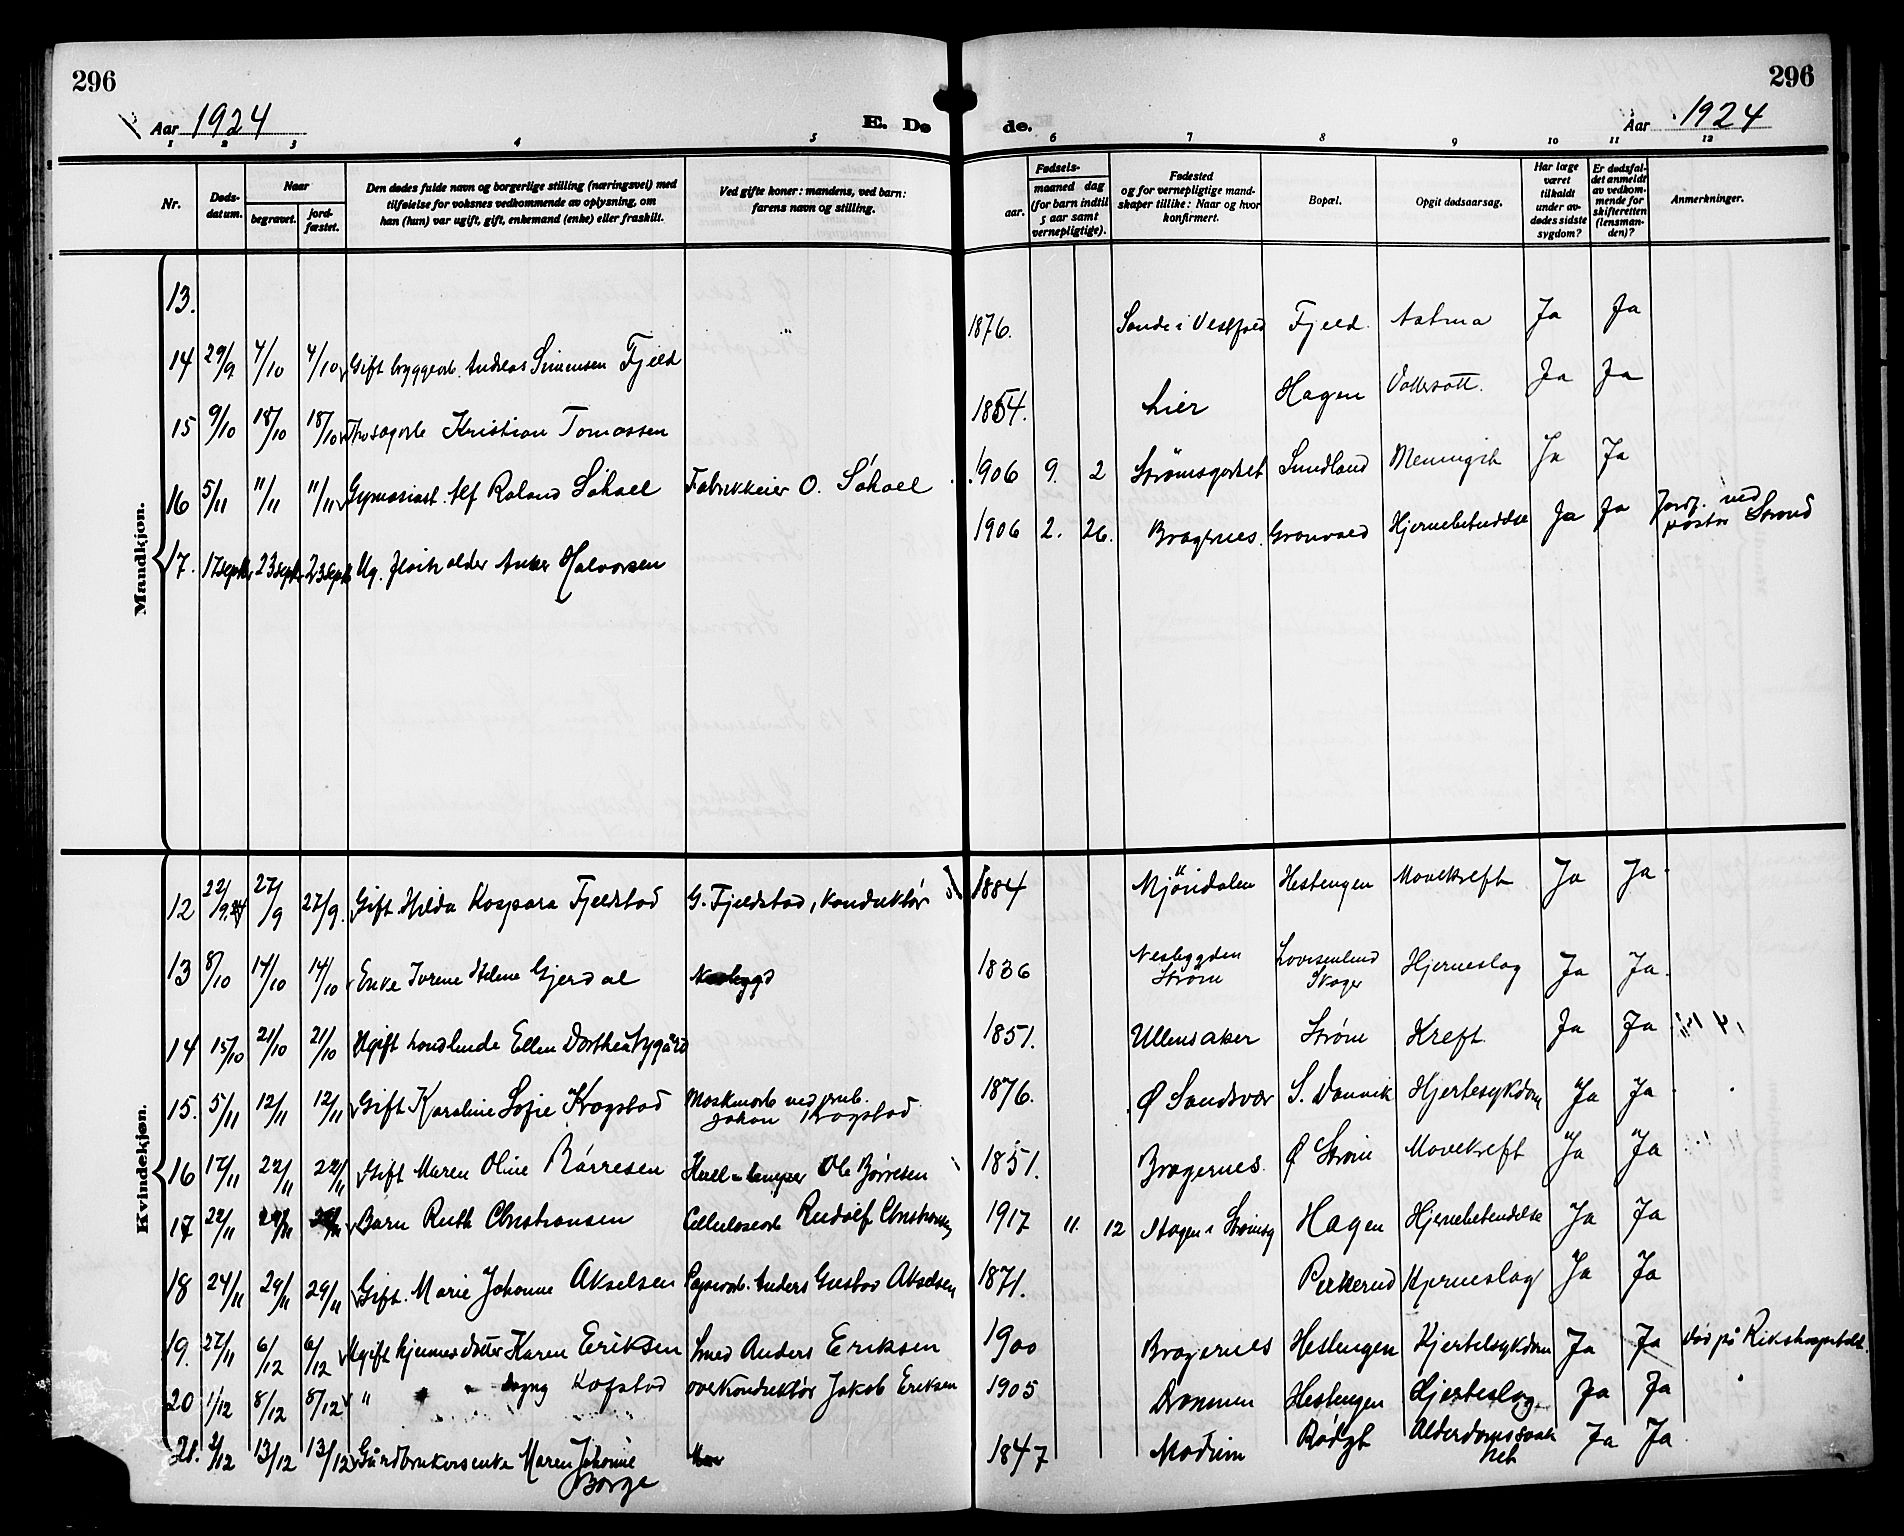 296
296
Aar 1924
E. Dø
de.
Aar 1924
1 2 3 4 5 6 7 8 9 10 11 12
Nr.
Døds-
datum.
Naar
begravet.
jord-
fæstet.
Den dødes fulde navn og borgerlige stilling (næringsvei) med
tilføielse for voksnes vedkommende av oplysning, om
han (hun) var ugift, gift, enkemand (enke) eller fraskilt.
Ved gifte koner: mandens, ved barn:
farens navn og stilling.
Fødsels-
aar.
maaned dag
(for barn indtil
5 aar samt
vernepligtige).
Fødested
og for vernepligtige mand-
skaper tillike: Naar og hvor
konfirmert.
Bopæl.
Opgit dødsaarsag.
Har læge
været
tilkaldt
under av-
dødes sidste
sygdom?
Er dødsfal-
det anmeldt
av vedkom-
mende for
skifteretten
(lensman-
den)?
Anmerkninger.
Mandkjøn.
13.
14 29/9 4/10 4/10 Gift bryggearb. Andreas Simensen Fjeld 1876. Sande i Vestfold Fjeld Astma Ja Ja
15 9/10 18/10 18/10 Kristian Tomassen 1854. Lier Hagen Vattersott. Ja Ja
16 5/11 11/11 11/11 Gymnasiast. Alf Roland Söhoel Fabrikkeier O. Söhoel 1906 9. 2 Strømsgodset Sundland Meningit Ja Ja
17. 17 sept 23 sept 23 sept Ug. Anker Halvorsen 1906 2. 26. Bragernes. Grønvold Hjernebetendelse Ja Ja Jordf. ved
pastor Strand
Kvindekjøn.
12 22/9.24 27/9 27/9. Gift Hilda Kaspara Fjeldstad G. Fjeldstad, konduktør 1884 Mjöndalen Hestengen Mavekreft Ja Ja
13 8/10 14/10 14/10 Enke Helene Gjerdal 1836 Nesbygden
Strøm Lovisenlund
Skoger Hjerneslag Ja Ja
14 15/10 21/10 21/10 Ugift Ellen Dorthea Nygård 1851. Ullensaker Strøm Kreft. Ja Ja
15. 5/11 12/11 12/11 Gift Karoline Sofie Krogstad
Johan Krogstad 1876. Ø Sandsvær S. Danvik Hjertesykdom Ja Ja
16 17/11 22/11 22/11 Gift Maren Oline Børresen Ole Børresen 1851. Bragernes. Ø Strøm Mavekreft Ja Ja
17 22/11 Barn Ruth Christiansen Cellulosearb Rudolf Christiansen 1917 11 12 Hagen i Strømsg Hagen Hjernebetendelse Ja Ja
18 24/11 29/11 29/11 Gift. Marie Johanne Akselsen Papirarb. Anders Gustav Akselsen 1871. Perkerud Hjerneslag Ja Ja
19. 27/11 6/12 6/12 Ugift hjemmedatter Karen Eriksen Smed Anders Eriksen 1900 Bragernes Hestengen Hjertesykdom Ja Ja død på Rikshospitalet.
20 1/12 8/12 8/12 " " Dagny Kofstad overkonduktør Jakob Eriksen 1905 Drammen Hestengen Hjerteslag Ja Ja
21. 2/12 13/12 13/12 Gårdbrukersenke Maren Johanne
Borge 1847 Modum Rødgt Alderdomssvak
het Ja Ja